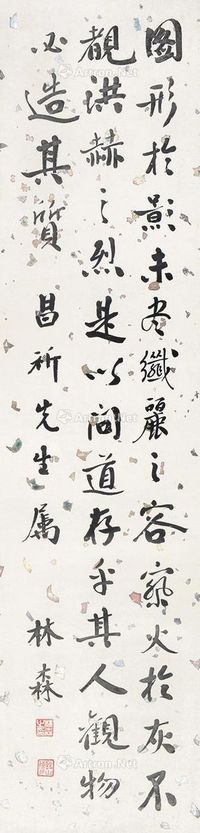 圖形於影未盡纖麗之容察火於灰不
覩洪赫之烈是以問道存乎其人觀物
必造其質 昌祈先生属 林森